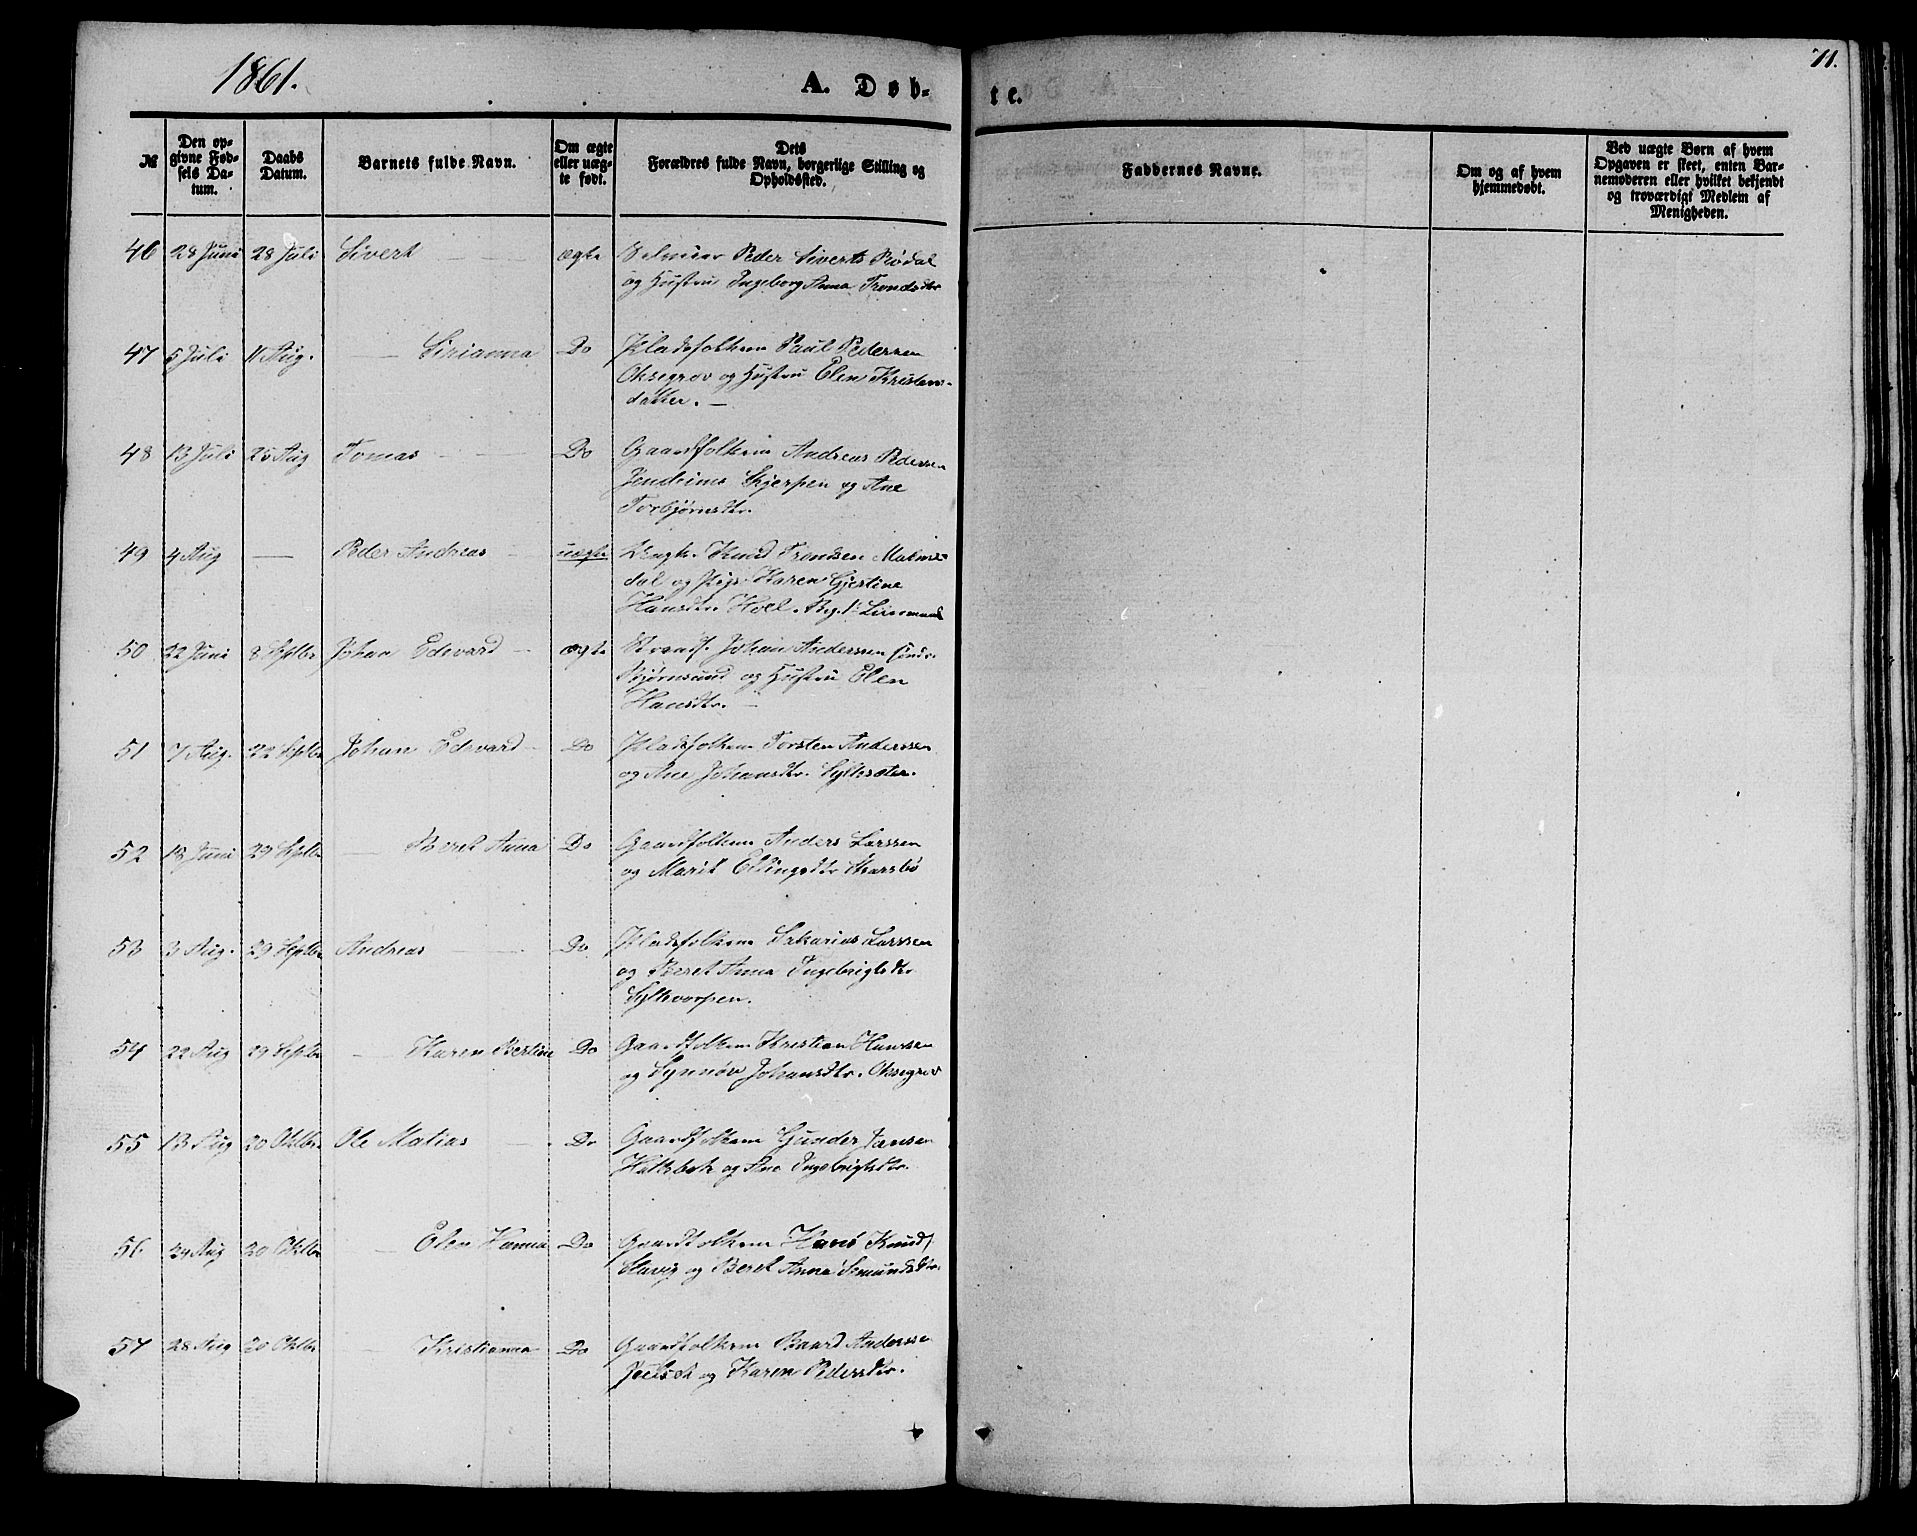 1861.
A. Døb-
te.
71.
№
Den op-
givne Fød-
sels Da-
tum.
Daabs
Datum.
Barnets fulde Navn.
Om ægte
eller uæg-
te født.
Dets
Forældres fulde Navn, borgerlige Stilling og
Opholdssted.
Faddernes Navne.
Om og af hvem
hjemmedøbt.
Ved uægte Børn af hvem
Opgaven er skeet, enten Bar-
nemoderen eller hvilket bekjendt
og troværdigt Medlem af
Menigheden.
46 28 Juni 28 Juli Sivert — ægte Peder Siverts Rødal
og Hustru Ingeborg Anna Trondsdtr
47 5 Juli 11 Aug. — Sirianna Do Pladsfolkene Paul Pedersen
Oksegrov og Hustru Elen Kristens-
datter. —
48 13 Juli 25 Aug Tomas — Do Gaardfolkene Andreas Pedersen
Jendeims Skjerpen og Ane
Torbjørnsdtr.
49 4 Aug — Peder Andreas — uægte Ungk. Knud Trondsen Malme-
dal og Pige Karen Gjertine
Hansdtr. Hoel.
50 22 Juni 8 Septbr Johan Edevard — ægte Strands. Johan Anderssen søndr.
Bjørnsund og Hustru Elen
Hansdtr. —
51 7 Aug. 22 Septbr Johan Edevard — Do Pladsfolkene Torsten Anderssen
og Ane Johansdtr. Sylteseter.
52 18 Juni 29 Septbr — Beret Anna Do Gaardfolkene Anders Larssen
og Marit Ellingsdtr Skarsbø
53 3 Aug. 29 Septbr Andreas — Do Pladsfolkene Sakarias Larssen
og Beret Anna Ingebrigtsdtr
Syltevorpen.
54 22 Aug 29 Septbr — Karen Bertine Do Gaardfolkene Kristian Hanssen
og Synnøv Johansdtr. Oksegrov
55 13 Aug 20 Oktbr. Ole Matias — Do Gaardfolkene Gunder Jansen
Hatlebak og Ane Ingebrigtsdtr.
56 24 Aug 20 Oktbr — Elen Hanna Do Gaardfolkene Hans Knuds.
Stavig og Beret Anna Simundsdtr.
57 28 Aug 20 Oktbr — Kristianna Do Gaardfolkene Baard Anderssen
og Karen Pedersdtr.